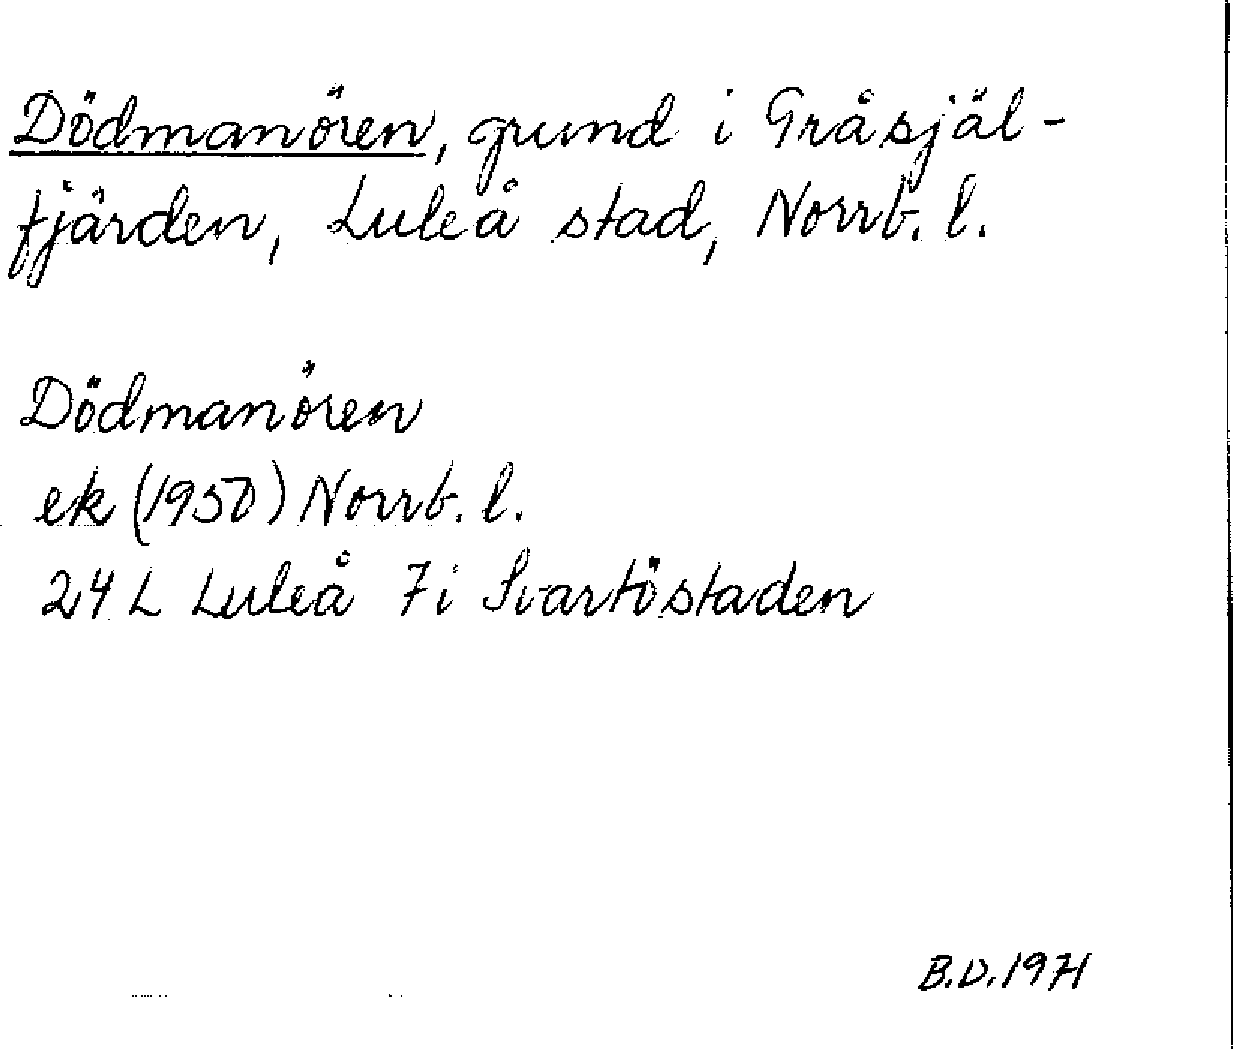 Dödmanören, grund i Gråsjäl-
fjärden, Luleå stad, Norrb. l.
Dödmanören
ek (1950) Norrb. l.
24 L Luleå 7i Svartöstaden
B.D. 1971